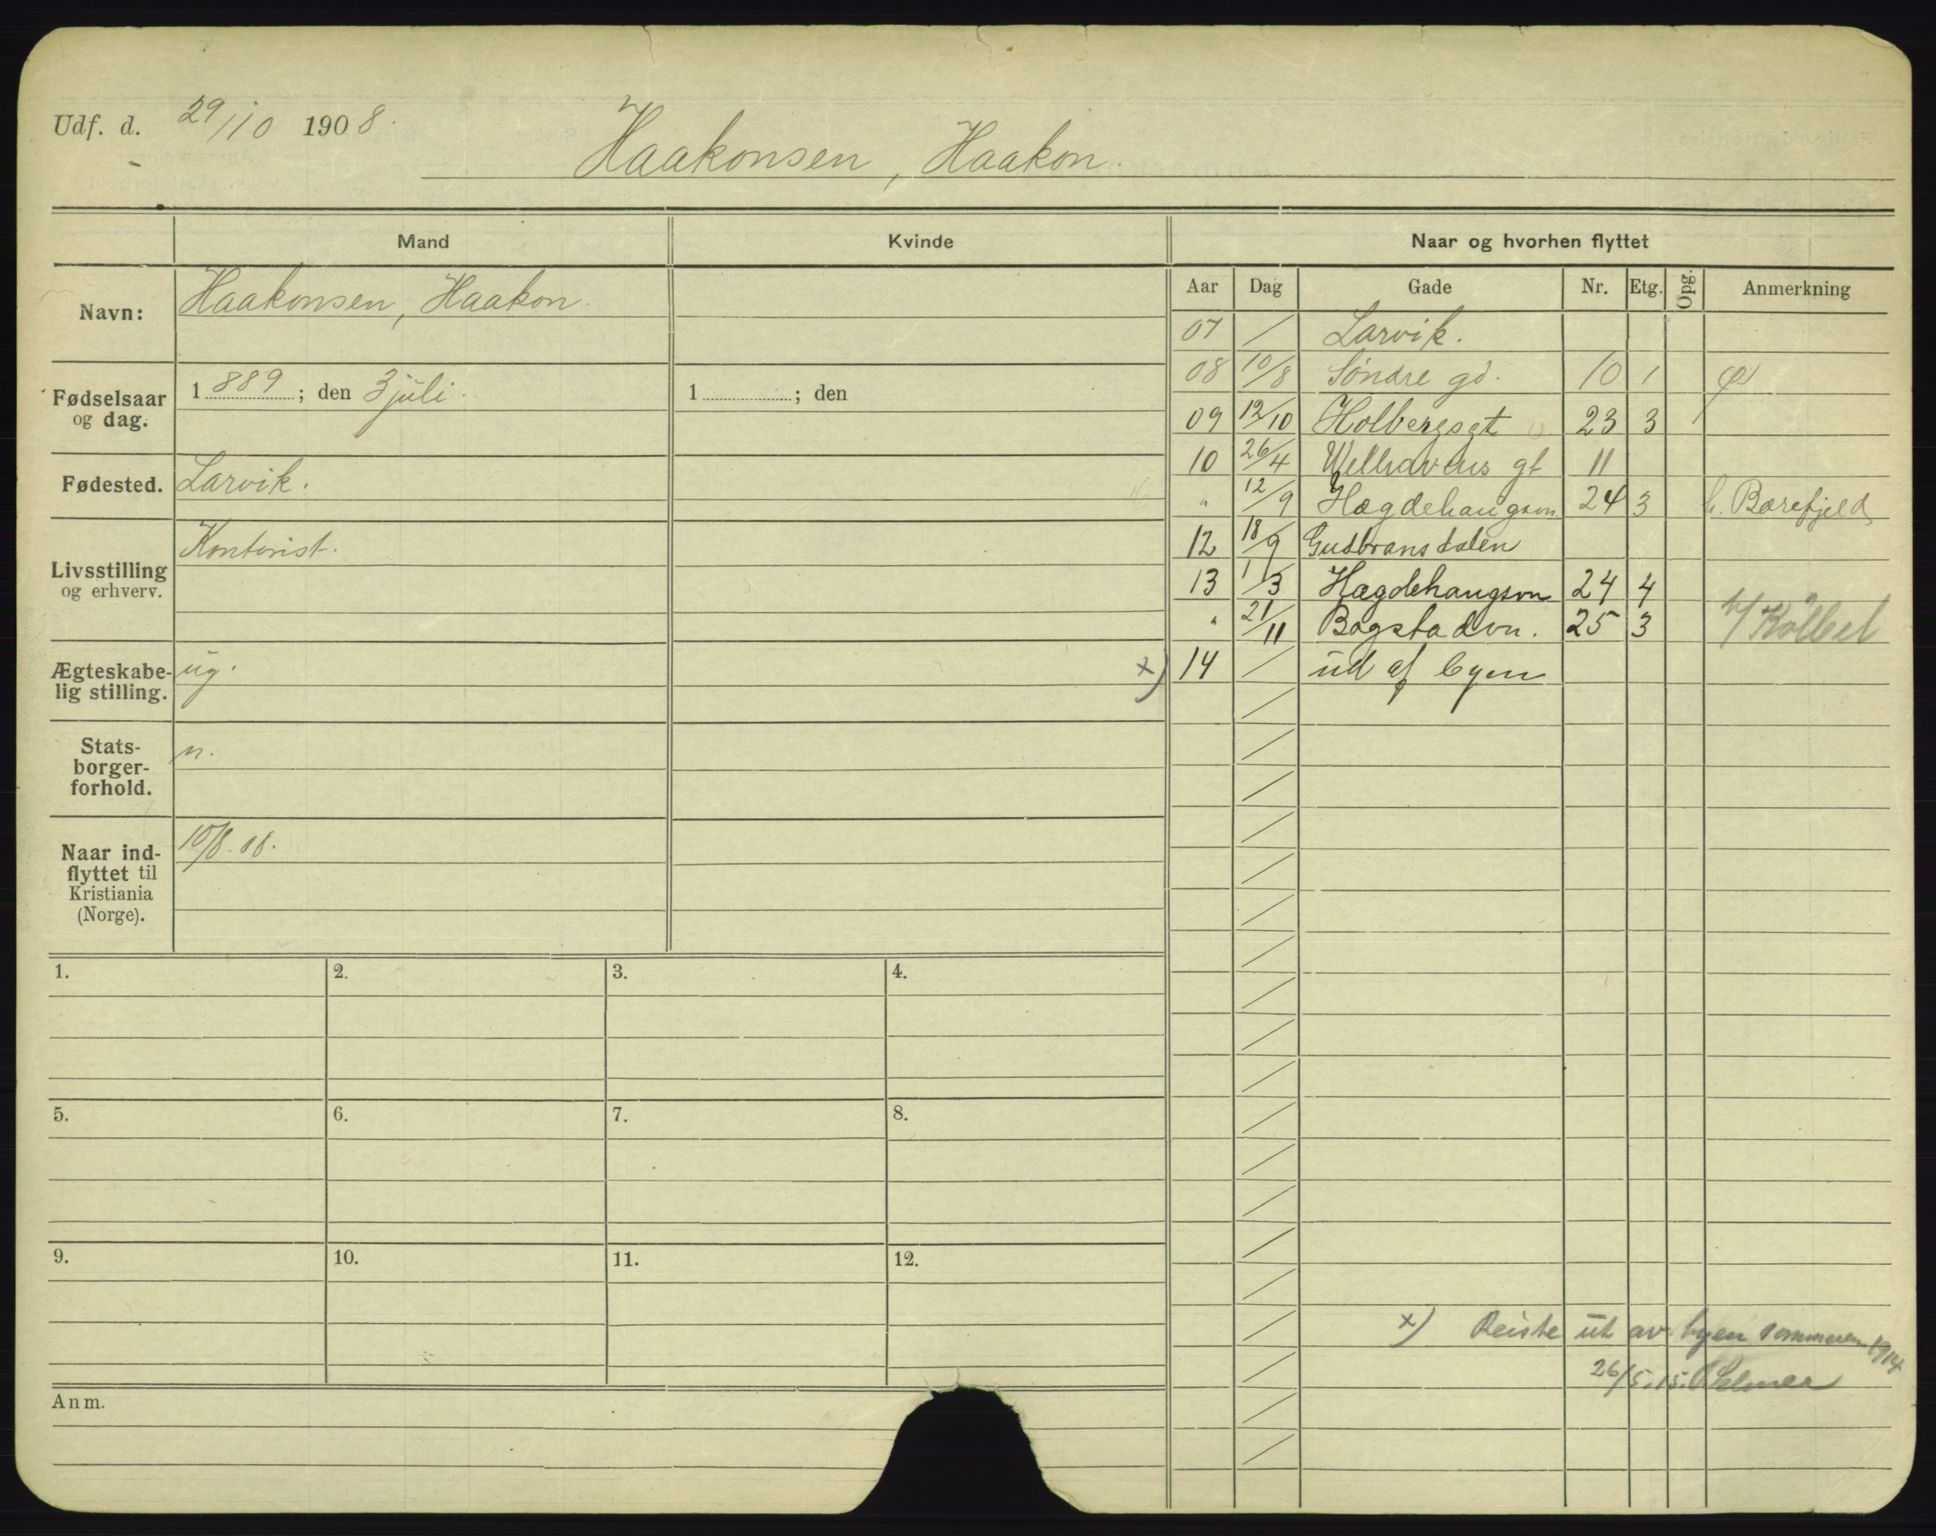 Udf. d. 29/10 1908.
Haakonsen, Haakon.
Mand
Kvinde
Naar og hvorhen flyttet
Aar Dag Gade Nr. Etg. Opg. Anmerkning
Navn: Haakonsen, Haakon.
Fødselsaar og dag. 1889; den 3 juli. 1 ; den
Fødested. Larvik.
Livsstilling og erhverv. Kontorist.
Ægteskabe-
lig stilling. ug.
Stats-
borger-
forhold. n.
Naar ind-
flyttet til
Kristiania
(Norge). 10/8.08.
07 / Larvik.
08 10/8 Søndre gd. 10 1
09 12/10 Holbergsgt 23 3
10 26/4 Welhavens gt 11
" 12/9 Hægdehaugsvn 24 3 h. Barefjeld
12 18/9 Gudbransdalen
13 1/3 Hægdehaugsvn 24 4
" 21/11 Bogstadvn. 25 3 v/ Kölbel
x) 14 / ud af byen
1. 2. 3. 4.
5. 6. 7. 8.
9. 10. 11. 12.
x) Reiste ut av byen sommeren 1914
26/5.15.
Anm.